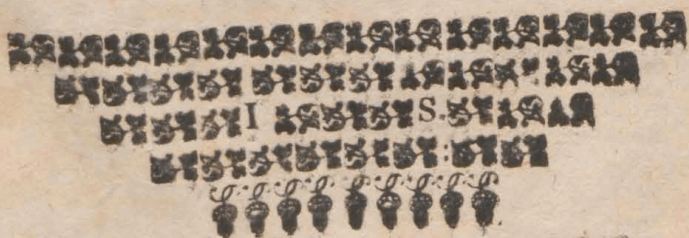 I S.